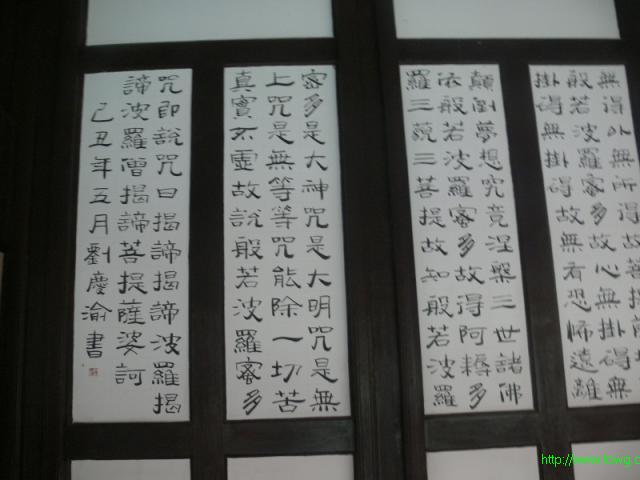 無得以無所得故菩
般若波羅蜜多故心無掛碍無
掛碍無掛碍故無有恐怖遠離
顛倒夢想究竟涅槃三世諸佛
依般若波羅蜜多故得阿耨多
羅三藐三菩提故知般若波羅
蜜多是大神咒是大明咒是無
上咒是無等等咒能除一切苦
真實不虛故說般若波羅蜜多
咒即說咒曰揭諦揭諦波羅揭
諦波羅僧揭諦菩提薩婆訶
己丑年五月劉慶渝書